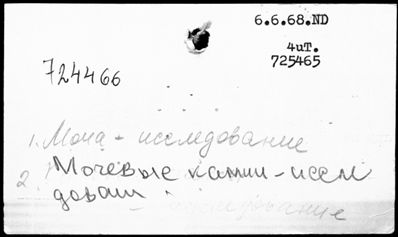 6.6.68.ND
4иT.
725465
724466
1. Моча - исследование
2. Мочевые камни - иссле
довани
исследование